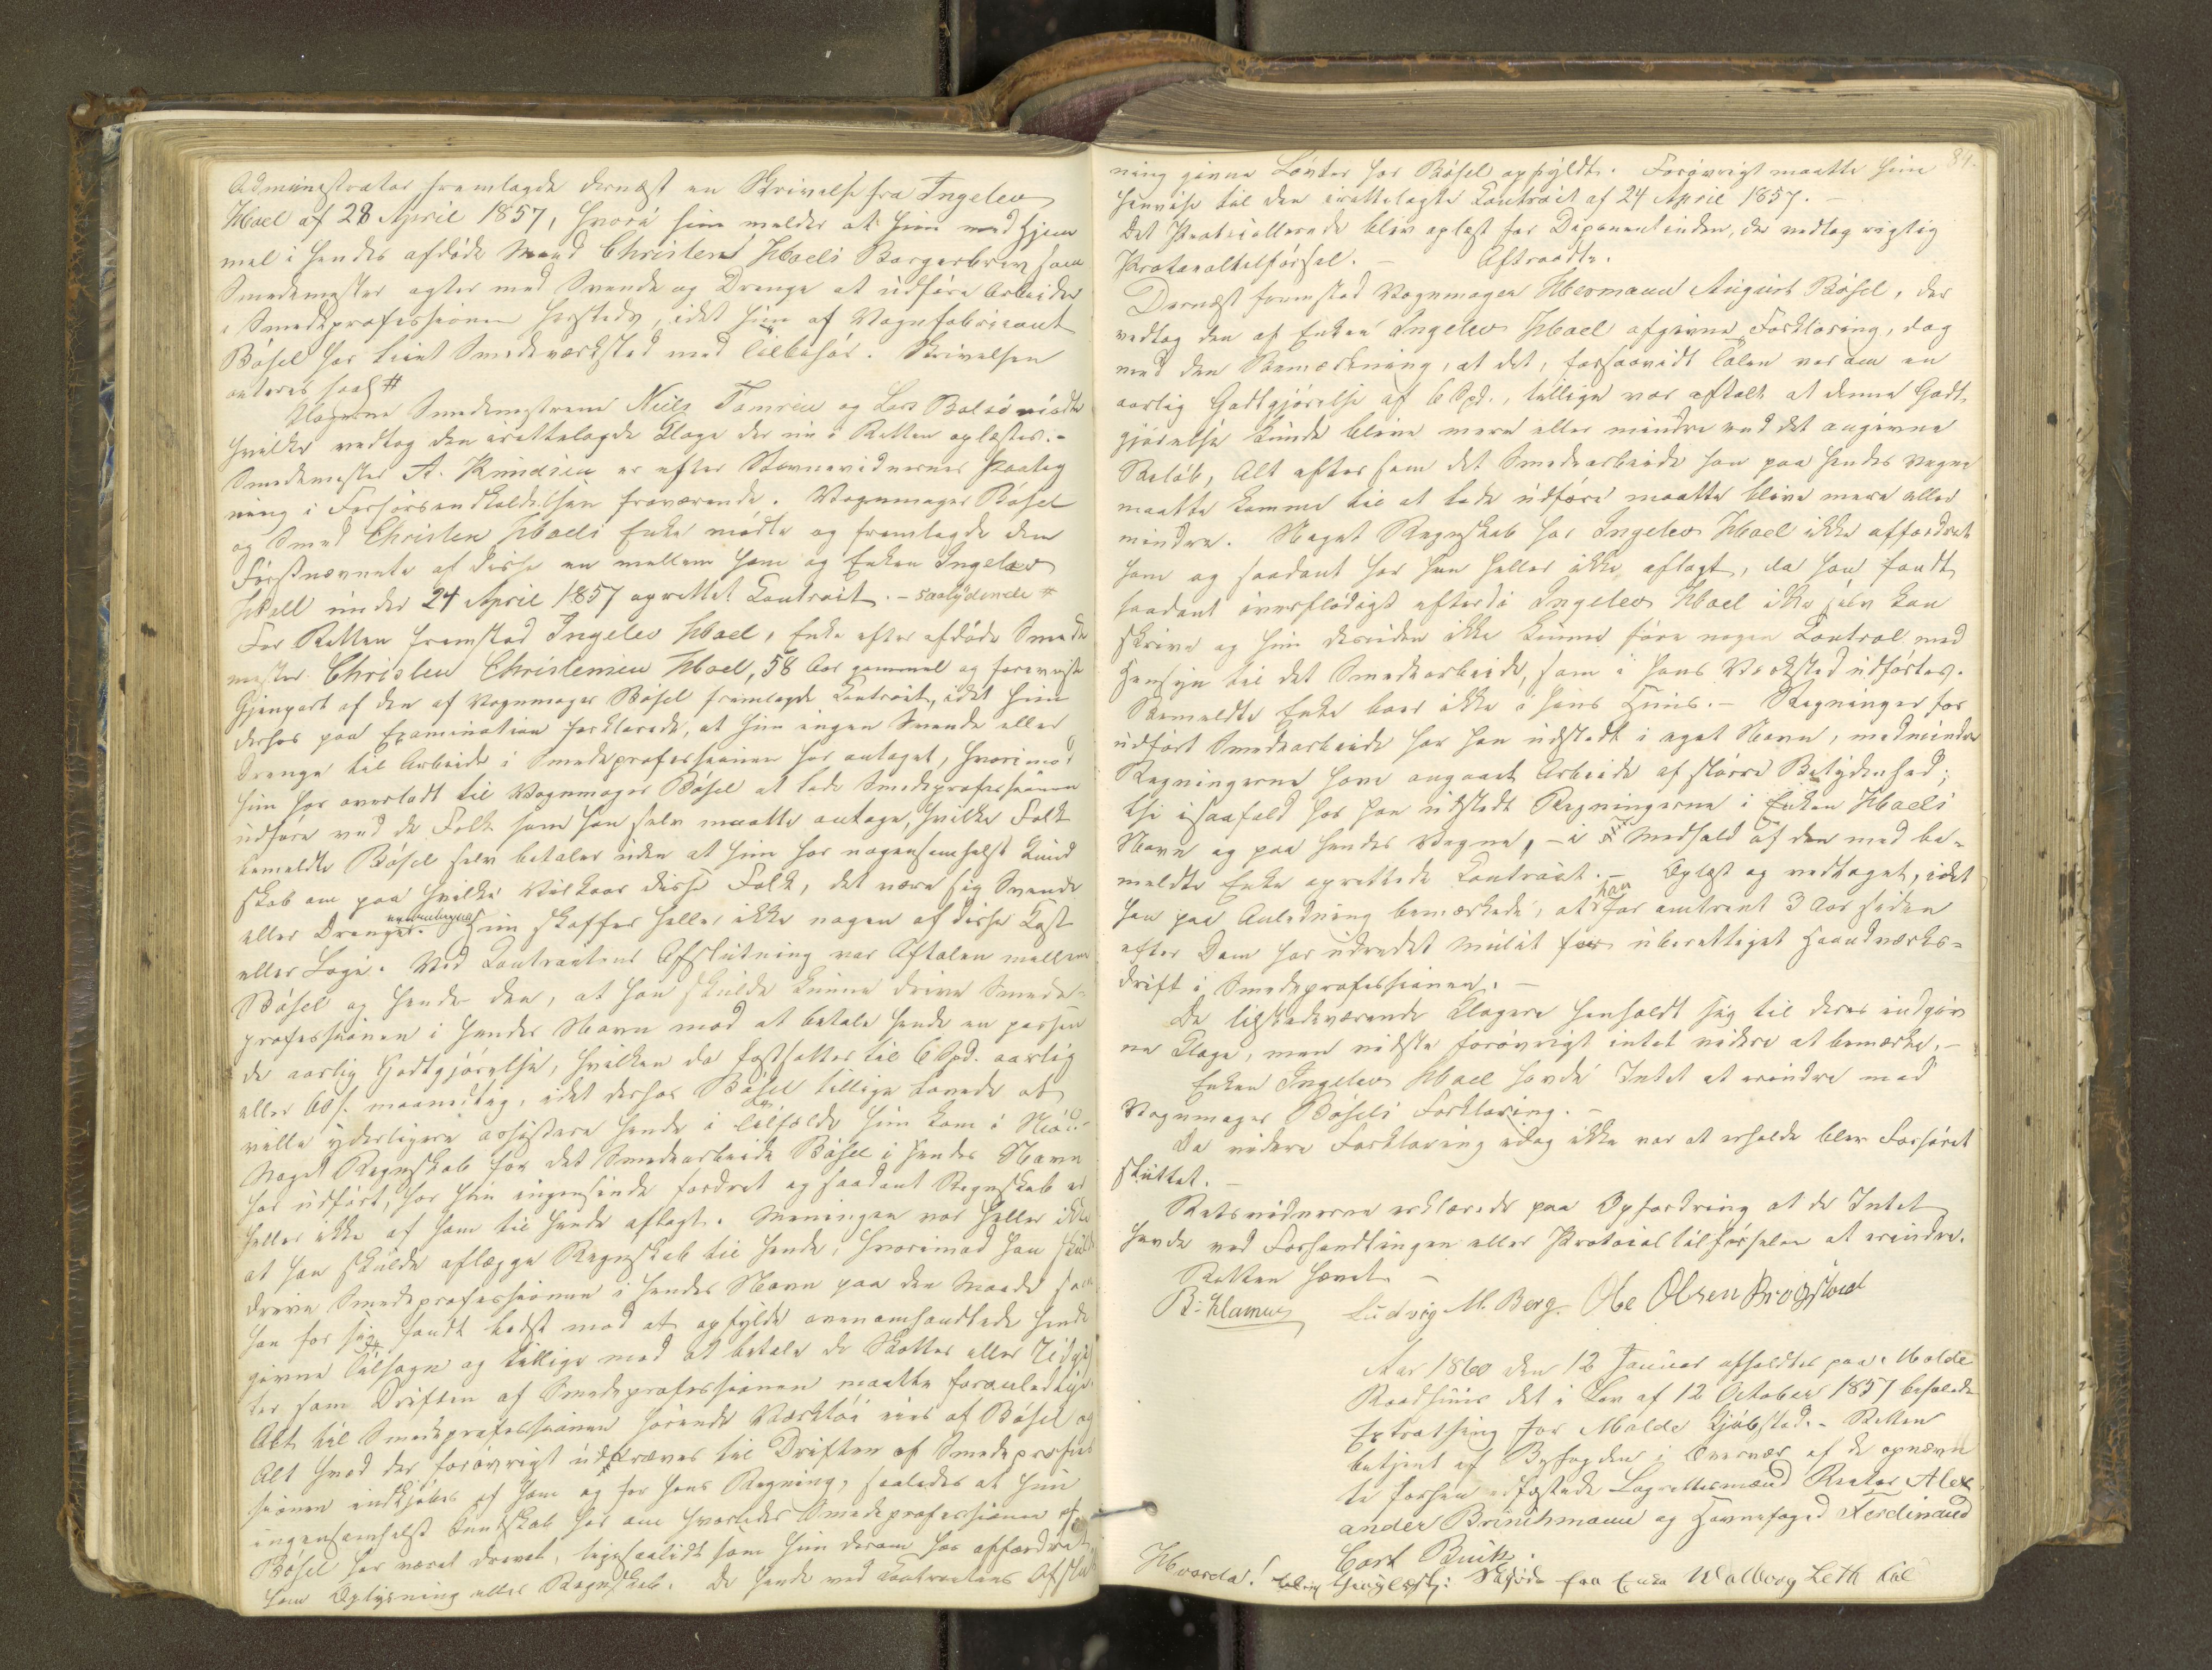 Administrator fremlagde dernæst en Skrivelse fra Ingelev
Hoel af 28 April 1857, hvori hun melder at hun med Hjem¬
mel i hendes afdøde Mand Christen Hoels Borgerbrev som
Smedemester agter med Svende og Drenge at udføre Arbeider
i Smedeprofessionen hersteds, idet hun af Vognfabricant
Bøsel har leiet Smedeværksted med Tilbehør. Skrivelsen
anteres saal #
Klagerne Smedemestrene Niels Tomren og Lars Bolsö mødte
hvilke vedtog den irettelagde Klage der nu i Retten oplæstes. -
Smedemester A. Knudsen er efter Stævnevidnernes Paateg
ning i Forhørsindkaldelsen fraværende. Vognmager Bøsel
og Smed Christen Hoels Enke mødte og fremlagde den
Førstnævnte af disse en mellem ham og Enken Ingelev
Hoell under 24 April 1857 oprettet Contract. - saalydende #
For Retten fremstod Ingelev Hoel, Enke efter afdøde Smede
mester Christen Christensen Hoel, 58 Aar gammel og foreviste
Gjenpart af den af Vognmager Bøsel fremlagde Contract, idet hun
derhos paa Examination forklarede, at hun ingen Svende eller
Drenge til Arbeide i Smedeprofessionen har antaget, hvorimod
hun har overladt til Vognmager Bøsel at lade Smedeprofessionen
udføre ved de Folk som han selv maatte antage, hvilke Folk
bemeldte Bøsel selv betaler uden at hun har nogensomhelst Kund
skab om paa hvilke Vilkaar disse Folk, det være sig Svende
eller Drenge, Hun skaffer heller ikke nogen af disse Kost
eller Logi. Ved Contractens Afslutning var Aftalen mellem
Bøsel og hende den, at han skulde kunne drive Smede¬
professionen i hendes Navn mod at betale hende en passen
de aarlig Godtgjørelse, hvilken da fastsattes til 6 Spd. aarlig
eller 60 s. maanedlig, idet derhos Bøsel tillige lovede at
ville yderligere assistere hende i Tilfælde hun kom i Nød. -
Noget Regnskab for det Smedearbeide Bøsel i hendes Navn
har udført, har hun ingensinde fordret og saadant Regnskab er
heller ikke af ham til hende aflagt. Meningen var heller ikke
at han skulde aflægge Regnskab til hende, hvorimod han skulde
drive Smedeprofessionen i hendes Navn paa den Maade som
han for sig fandt bedst mod at opfylde ovenomhandlede hende
givne Tilsagn og tillige mod at betale de Skatter eller Udgif
ter som Driften af Smedeprofessionen maatte foranledige.
Alt til Smedeprofessionen hørende Værktøi eies af Bøsel og
Alt hvad der forøvrigt udkræves til Driften af Smedeprofes
sionen indkjøbes af ham og for hans Regning, saaledes at hun
ingensomhelst Kundskab har om hvorledes Smedeprofessionen af
Bøsel har været drevet, ligesaalidt som hun derom har affordret
ham Oplysning eller Regnskab. De hende ved Contractens Afslut
84.
ning givne Løvter har Bøsel opfyldt. Forøvrigt maatte hun
henvise til den irettelagte Contract af 24 April 1857. -
Det Protocollerede blev oplæst for Deponentinden, der vedtog rigtig
Protocoltilførsel. - Aftraadte.
Dernæst fremstod Vognmager Hermann August Bøsel, der
vedtog den af Enken Ingelev Hoel afgivne Forklaring, dog
med den Bemærkning, at det, forsaavidt Talen var om en
aarlig Godtgjørelse af 6 Spd., tillige var aftalt at denne Godt¬
gjørelse kunde blive mere eller mindre end det angivne
Beløb, Alt efter som det Smedearbeide han paa hendes Vegne
maatte komme til at lade udføre maatte blive mere eller
mindre. Noget Regnskab har Ingelev Hoel ikke affordret
ham og saadant har han heller ikke aflagt, da han fandt
saadant overflødigt efterdi Ingelev Hoel ikke selv kan
skrive og hun desuden ikke kunne føre nogen Control med
Hensyn til det Smedearbeide, som i hans Værksted udførtes.
Bemeldte Enke boer ikke i hans Huus. - Regninger for
udført Smedearbeide har han udstedt i eget Navn, medmindre
Regningerne have angaaet Arbeide af større Betydenhed;
thi isaafald har han udstedt Regningerne i Enken Hoels
Navn og paa hendes Vegne, - i Medhold af den med be¬
meldte Enke oprettede Contract. - Oplæst og vedtaget, idet
han paa Anledning bemærkede, at han for omtrent 3 Aar siden
efter Dom har udredet Mulct for uberettiget Haandværks¬
drift i Smedeprofessionen. -
De tilstedeværende Klagere henholdt sig til deres indgiv
ne Klage, men vidste forøvrigt intet videre at bemærke. -
Enken Ingelev Hoel havde Intet at erindre mod
Vognmager Bøsels Forklaring. -
Da videre Forklaring idag ikke var at erholde blev Forhøret
sluttet. -
Retsvidnerne erklærede paa Opfordring at de Intet
havde ved Forhandlingen eller Protocoltilførselen at erindre.
Retten hævet -
Ludvig M. Berg. Ole Olsen Brogstad
Aar 1860 den 12 Januar afholdtes paa Molde
Raadhuus det i Lov af 12 October 1857 befalede
Extrathing for Molde Kjøbstad. - Retten
betjent af Byfogden i Overvær af de opnævn
te forhen edfæstede Lagrettesmænd Rector Alex
ander Brinchmann og Havnefoged Ferdinand
Carl Buck.
Hvorda! blev Thinglæst: Skjøde fra Enke Walborg Leth til